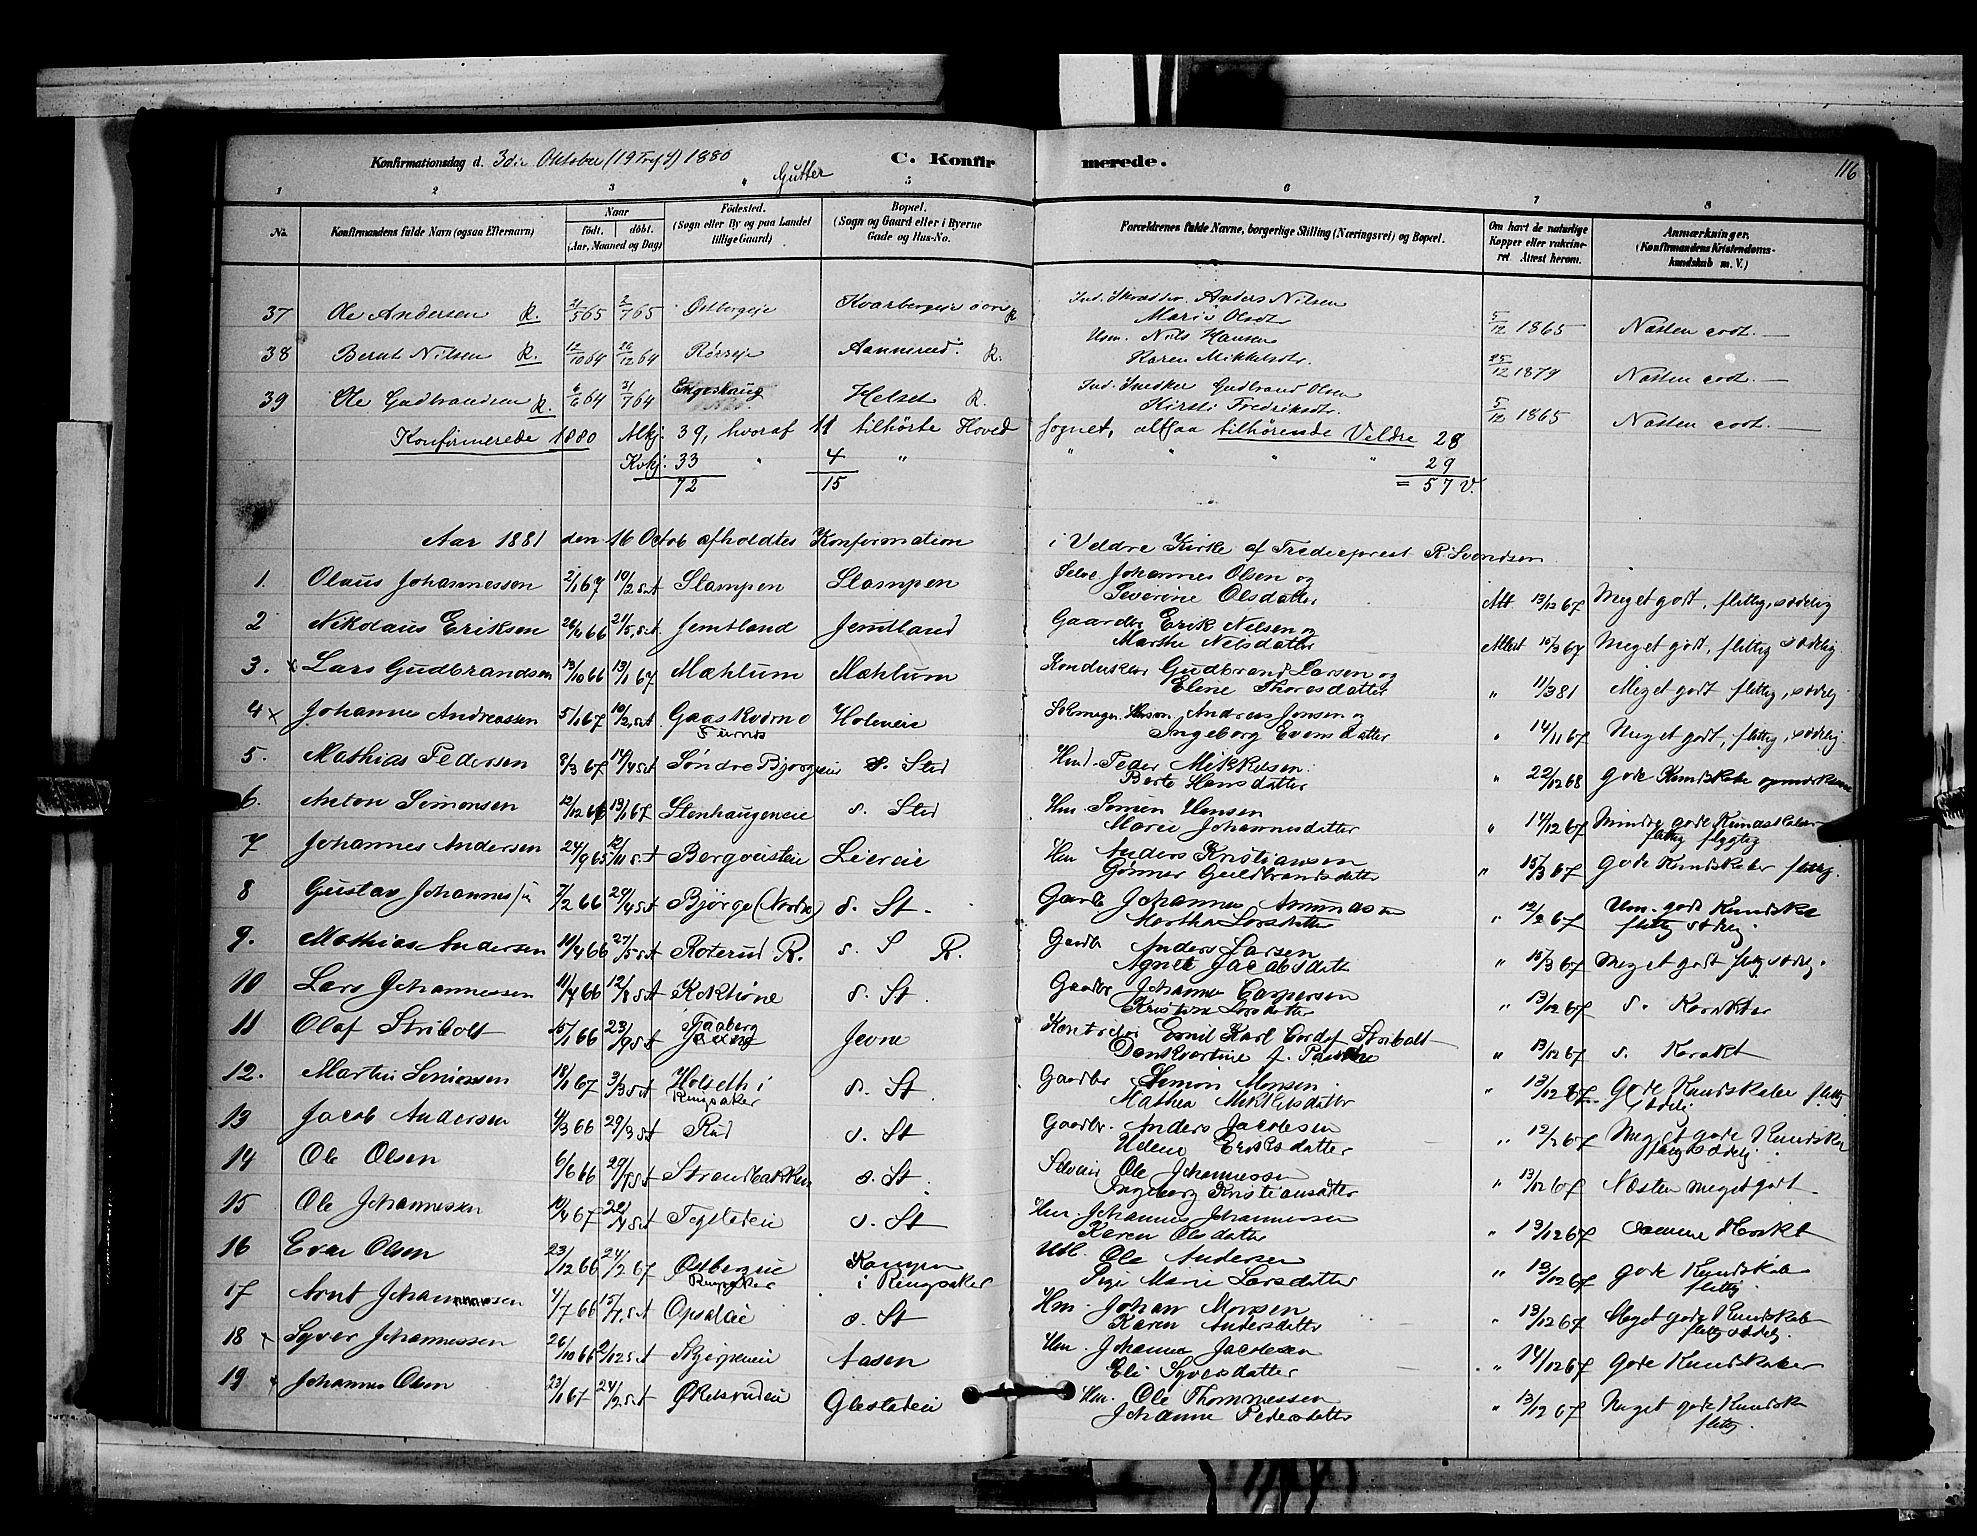 Konfirmationsdag d. 3die Oktober (19 Tref) 1880 C. Konfirmerede. 116
" Gutter
1 2 3 5 6 7 8
No. Konfirmandens fulde Navn (ogsaa Efternavn) Naar født. døbt. (Aar, Maaned og Dag) Fødested. (Sogn eller By og paa Landet tillige Gaard) Bopæl. (Sogn og Gaard eller i Byerne Gade og Hus-No. Forældrenes fulde Navne, borgerlige Stilling (Næringsvei) og Bopæl. Om havt de naturlige Kopper eller vakcineret Attest herom. Anmærkninger. (Konfirmandens Kristendomskundskab m. V.)
37 Ole Andersen R. 21/5 65 2/7 65 Østbergeie Kvarbergeie R Ind. Skrædder Anders Nilsen
Marie Olsdtr 5/12 1865 Næsten godt. —
38 Bernt Nilsen R. 12/10 64 26/12 64 Rørseie Aannerud. R. Usm. Nils Hansen
Karen Mikkelsdtr. 25/12 1879 Næsten godt. —
39 Ole Gudbrandsen R. 6/6 64 31/7 64 Engeshaug Helset R. Ind. Snedker Gudbrand Olsen
Kirsti Fredriksdtr. 5/12 1865 Næsten godt. —
Konfirmerede 1880 Mkj. 39, hvoraf 11 tilhørte Hovedsognet, altsaa tilhørende Veldre 28
Kvkj. 33 " 4 " " " " " 29
72 15 = 57 V.
Aar 1881 den 16 Octob afholdtes Konfirmation i Veldre Kirke af Trediepræst R. Svendsen
1. Olaus Johannessen 2/1 67 10/2 s.A Slampen Slampen Selve Johannes Olsen og
Severine Olsdatter Att 13/12 67 Meget godt, flittig, sædelig
2 Nikolaus Eriksen 26/4 66 21/5 s.A Jemtland Jemtland Gaardbr Erik Nelsen og
Marthe Nelsdatter Attest 15/3 67 Meget godt, flittig sædelig
3. x Lars Gudbrandsen 13/10 66 13/1 67 Mæhlum Mæhlum Konduktør Gudbrand Larsen og
Elene Thoresdatter " 11/3 81 Meget godt flittig, sædelig
4 x Johannes Andreassen 5/1 67 10/2 s.A Gaaskvern Holmeie Andreas Jonsen og
Furnes Ingeborg Evensdatter " 14/11 67 Meget godt, flittig, sædelig
5. Mathias Pedersen 8/3 67 14/4 s.A Søndre Bjørgeeie s. Sted Hmd Peder Mikkelsen
Berte Hansdatter " 22/12 68 gode Kundskaber opmærksom
6. Anton Simonsen 12/12 66 13/1 67 Stenhaugeneie s. Sted Hm. Simen Hansen
Marie Johannesdatter " 14/12 67 Mindre gode Kundskaber
flittig
7 Johannes Andersen 24/9 65 12/11 s.A Bergvesteie Leiereie Hm Anders Kristiansen
Gønner Guldbrandsdatter " 15/3 67 gode Kundskaber flittig.
8 Gustav Johannessen 7/2 66 24/4 s.A Bjørge (Nordre) s. St. Gaardbr Johannes Amundsen
Marthe Larsdatter " 12/2 67 Um. gode Kundskab
flittig sædelig.
9. Mathias Andersen 10/4 66 27/5 s.A Roterud R. s. S R. Gaardbr Anders Larsen
Agnete Jacobsdatter " 15/3 67 Meget godt flittig sædelig.
10 Lars Johannessen 11/7 66 12/8 s.A Koktvine s. St. Gaardbr Johannes Caspersen
Kristine Larsdatter " 13/12 67 s. Karakter
11 Olaf Stribolt 15/1 66 23/9 s.A Faaberg Jevne Emil Karl Stribolt
Jevne " 13/12 67 s. Karakt
12. Martin Simensen 18/1 67 3/3 s.A Holseth i s. St. Gaardbr Simon Monsen
Ringsaker Mathea Mikkelsdatter " 13/12 67 Gode Kundskaber flittig
sædeli
13 Jacob Andersen 4/3 66 29/3 s.A Rud s. St Gaardbr. Anders Jacobsen
Helene Eriksdatter " 12/2 67 Meget gode Kundska
flittig sædelig.
14 Ole Olsen 6/6 66 29/7 s.A Strandbakken s. St. Selveier Ole Johannessen
Ingeborg Kristiansdatter " 13/12 67 Næsten meget godt
15 Ole Johannessen 10/4 67 22/4 s.A Teglstadeie s. St Hm. Johannes Johannessen
Karen Olsdatter " 13/12 67 samme Karakt
16 Even Olsen 23/12 66 24/2 67 Østbergeie Kampen Udl. Ole Andersen
Ringsaker i Ringsaker Pige Marie Larsdatter " 13/12 67 gode Kundskab
flittig
17 Arnt Johannessen 4/7 66 15/7 s.A Opsaleie s. St Hm. Johan Monsen
Karen Andersdatter " 13/12 67 Meget gode Kundskab
flittig sædelig.
18 x Syver Johannessen 26/10 66 2/12 s.A Skjerpeneie Aasen Hm. Johannes Jacobsen
Eli Syversdatter " 14/12 67 gode Kundskaber
19 x Johannes Olsen 23/1 67 24/2 s.A Økelsrudeie Glestadeie Hm. Ole Thommessen
Johanne Pedersdatter " 13/12 67 Meget gode Kundska
flittig